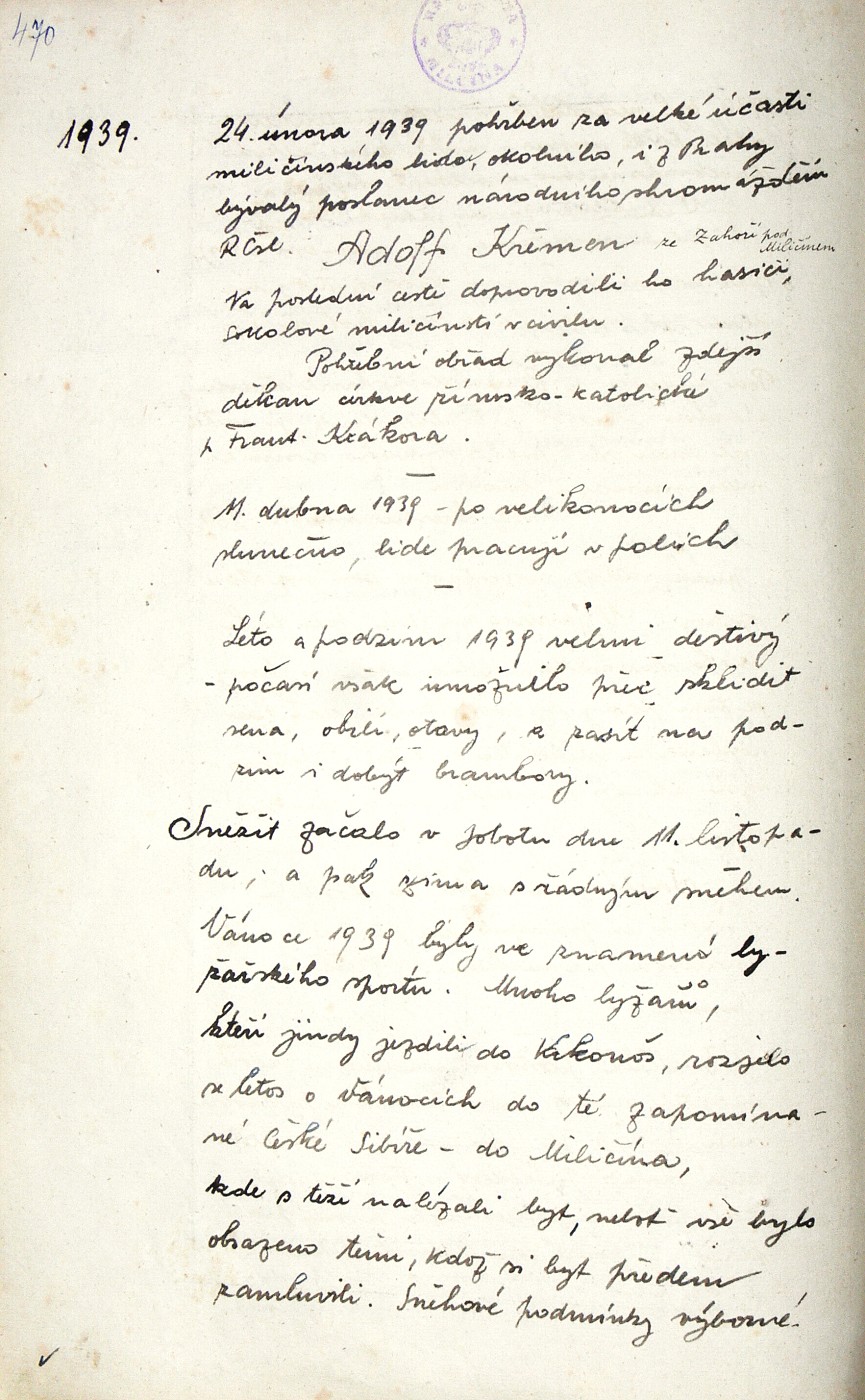 470
MILČÍNA
1939.
24. února 1939 pohřben za velké účasti
miličínského lidu, okolního, i z Prahy
bývalý poslanec národního shromáždění
RČsl. Adolf Křemen ze Záhoří pod
Miličínem
Na poslední cestě doprovodili ho hasiči,
sokolové miličínští v civilu.
Pohřební obřad vykonal zdejší
děkan církve římsko-katolické
p Frant. Kčákora.
—
11. dubna 1939 - po velikonocích
slunečno, lidé pracují v polích
—
Léto a podzim 1939 velmi deštivý
- počasí však umožnilo přec sklidit
sena, obilí, otavy, a zasít na pod-
zim i dobýt brambory.
Sněžit začalo v sobotu dne 11. listopa-
du, a pak zima s řádným sněhem.
Vánoce 1939 byly ve znamení ly-
žařského sportu. Mnoho lyžařů,
kteří jindy jezdili do Krkonoš, rozjelo
se letos o vánocích do té zapomína-
né České Sibíře - do Miličína,
kde s těží nalézali byt, neboť vše bylo
obsazeno těmi, kdož si byt předem
zamluvili. Sněhové podmínky výborné.